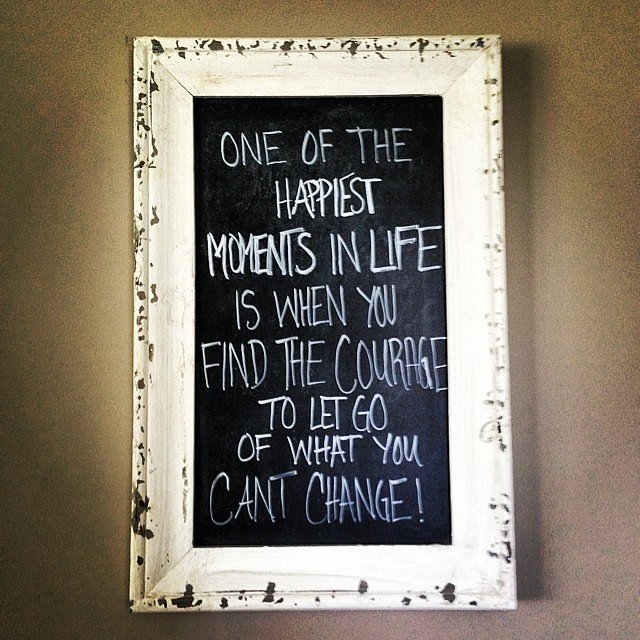 ONE OF THE
HAPPIEST
MOMENTS IN LIFE
IS WHEN YOU
FIND THE COURAGE
TO LET GO
OF WHAT YOU
CANT CHANGE!